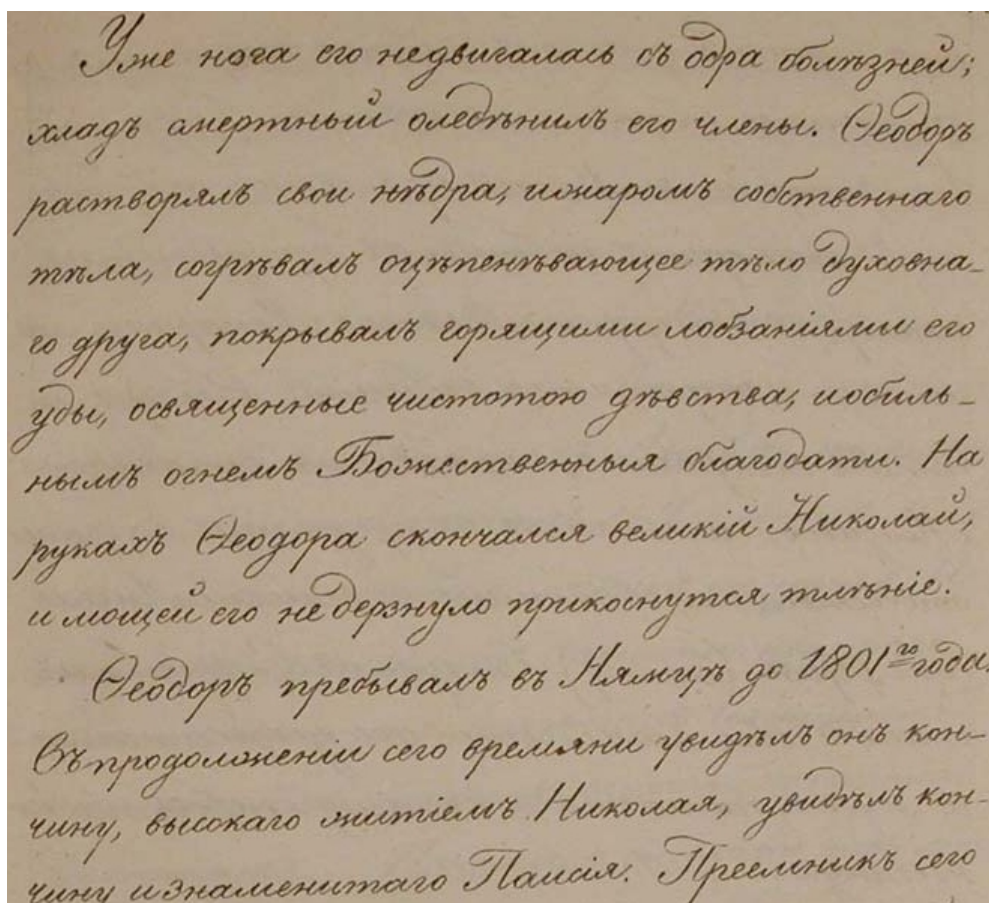 Уже нога его недвигалась съ одра болѣзней;
хладъ смертный оледѣнилъ его члены. Ѳеодоръ
растворялъ свои нѣдра, ижаромъ собственнаго
тѣла, согрѣвалъ оцѣпенѣвающее тѣло духовна-
го друга, покрывалъ горящими лобзаніями его
уды, освященные чистотою дѣвства, иобиль-
нымъ огнемъ Божественныя благодати. На
рукахъ Ѳеодора скончался великій Николай,
и мощей его не дерзнуло прикоснутся тлѣніе.
Ѳеодоръ пребывалъ въ Нямцѣ до 1801го года.
Въпродолженіи сего времяни увидѣлъ онъ кон-
чину, высокаго житіемъ Николая, увидѣлъ кон-
чину изнаменитаго Паисія. Преемникъ сего